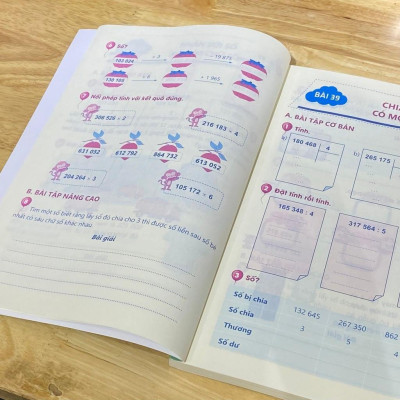 6 Số?
193 824
÷ 3
− 19 875
136 168
+ 1 963
7 Nối phép tính với kết quả đúng.
306 526 × 2
216 183 × 4
621 052
612 792
864 732
613 052
204 264 × 3
105 172 × 6
B. BÀI TẬP NÂNG CAO
Tìm một số biết rằng lấy số đó chia cho 3 thì được số liền sau số bé
nhất có sáu chữ số khác nhau.
Bài giải
BÀI 39
CHIA
CÓ MỘ
A. BÀI TẬP CƠ BẢN
1 Tính.
a) 180 468 4
b) 265 175
2 Đặt tính rồi tính.
165 348 : 4
317 564 : 5
3 Số?
Số bị chia 132 645 267 350 862
Số chia 3 5 4
Thương
Số dư